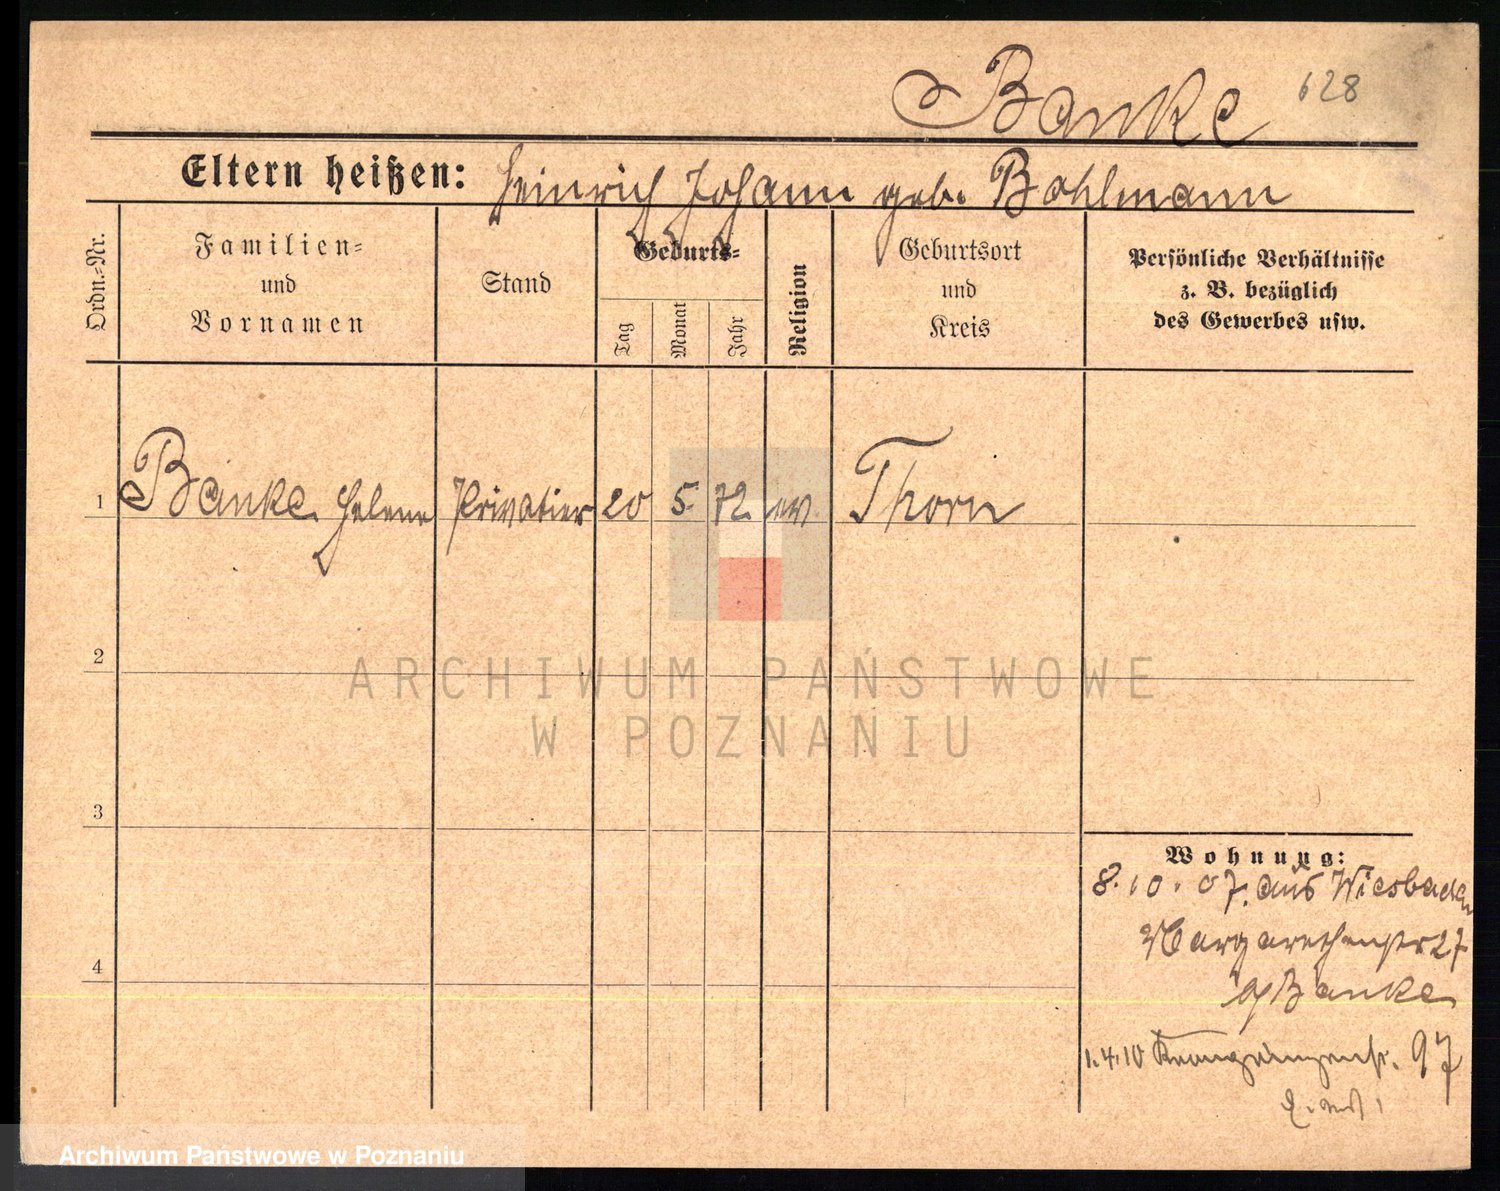 Banke 628
Eltern heißen: Heinrich Johann geb. Bohlmann
Ordn.=Nr.
Familien=
und
Vornamen
Stand
Geburts=
Tag
Monat
Jahr
Religion
Geburtsort
und
Kreis
Persönliche Verhältnisse
z. B. bezüglich
des Gewerbes usw.
1 Banke Helene Privatier 20 5. 72 ev. Thorn
2
3
4
ARCHIWUM PAŃSTWOWE
W POZNANIU
Wohnung:
8.10.07. aus Wiesbaden
Margarethenstr 27
b/ Banke
1.4.10 Kronprinzenstr. 97
Archiwum Państwowe w Poznaniu